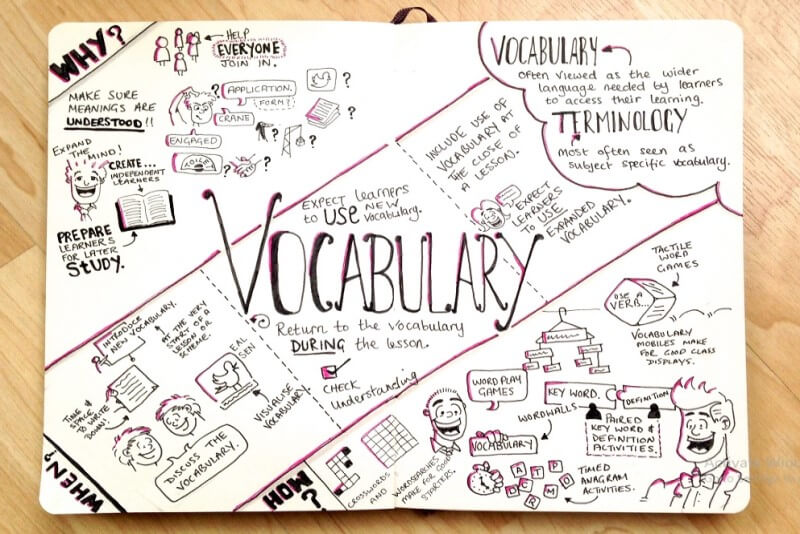 WHY?
HELP
EVERYONE
JOIN IN.
MAKE SURE
MEANINGS ARE
UNDERSTOOD!!
APPLICATION.
FORM?
CRANE
ENGAGED
TOILET
?
?
?
?
?
?
?
EXPAND
THE MIND!
CREATE...
INDEPENDENT
LEARNERS
PREPARE
LEARNERS
FOR LATER
STUDY.
VOCABULARY
Often viewed as the wider
language needed by learners
to access their learning.
TERMINOLOGY
Most often seen as
subject specific vocabulary.
INCLUDE USE OF
VOCABULARY AT
THE CLOSE OF
A LESSON.
EXPECT
LEARNERS
TO USE
EXPANDED
VOCABULARY.
EXPECT learners
to USE new
vocabulary.
VOCABULARY
Return to the vocabulary
DURING the lesson.
CHECK
Understanding
INTRODUCE
NEW VOCABULARY.
AT THE VERY
START OF A
LESSON OR
SCHEME.
TIME &
SPACE
TO WRITE
DOWN!
EAL
SEN
VISUALISE
VOCABULARY
DISCUSS THE
VOCABULARY.
WHEN?
HOW?
CROSSWORDS
AND
WORDSEARCHES
MAKE FOR GOOD
STARTERS.
WORD PLAY
GAMES
WORDWALLS
VOCABULARY
TACTILE
WORD
GAMES
USE A
VERB...
VOCABULARY
MOBILES MAKE
FOR GOOD CLASS
DISPLAYS.
KEY WORD.
DEFINITION
PAIRED
KEY WORD &
DEFINITION
ACTIVITIES.
A T P
D C R M O
TIMED
ANAGRAM
ACTIVITIES.